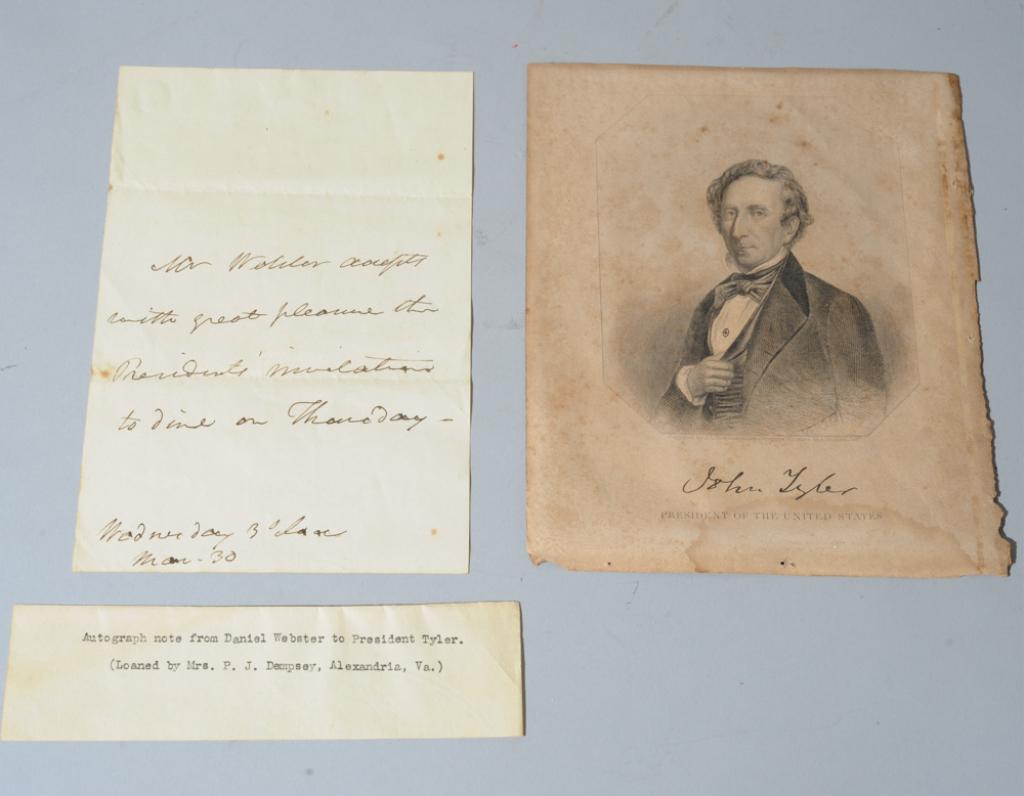 Mr Webster accepts
with great pleasure the
Presidents' invitation
to dine on Thursday -
Wednesday 3 o'
Mar. 30
John Tyler
PRESIDENT OF THE UNITED STATES
Autograph note from Daniel Webster to President Tyler.
(Loaned by Mrs. P. J. Dempsey, Alexandria, Va.)